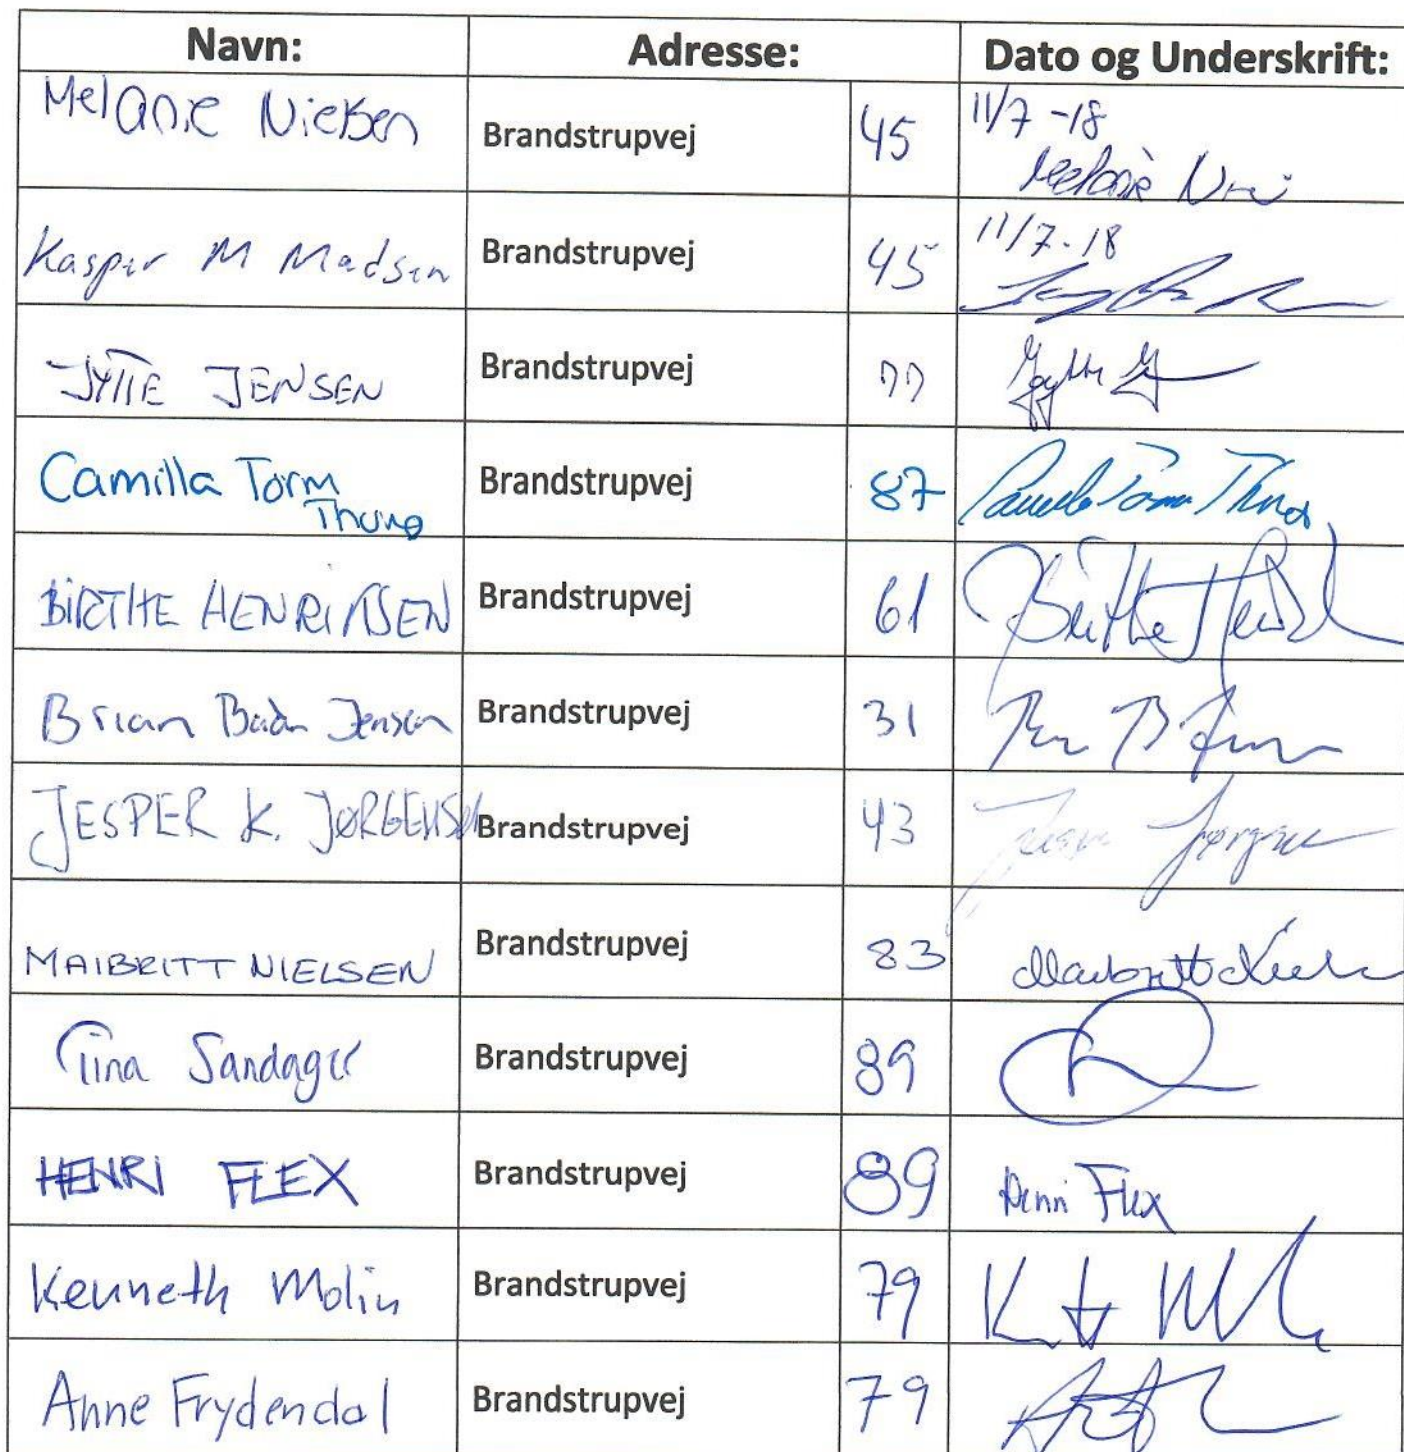 Navn: Adresse: Dato og Underskrift:
Melanie Nielsen Brandstrupvej 45 11/7-18
Kasper M Madsen Brandstrupvej 45 11/7-18
JYTTE JENSEN Brandstrupvej 77
Camilla Torm Brandstrupvej 87
Thunø
BIRTHE HENRIKSEN Brandstrupvej 61
Brian Jensen Brandstrupvej 31
JESPER K. JØRGENSEN Brandstrupvej 43
MAIBRITT NIELSEN Brandstrupvej 83
Tina Sandager Brandstrupvej 89
HENRI FLEX Brandstrupvej 89 Henri Flex
Kenneth Molin Brandstrupvej 79
Anne Frydendal Brandstrupvej 79